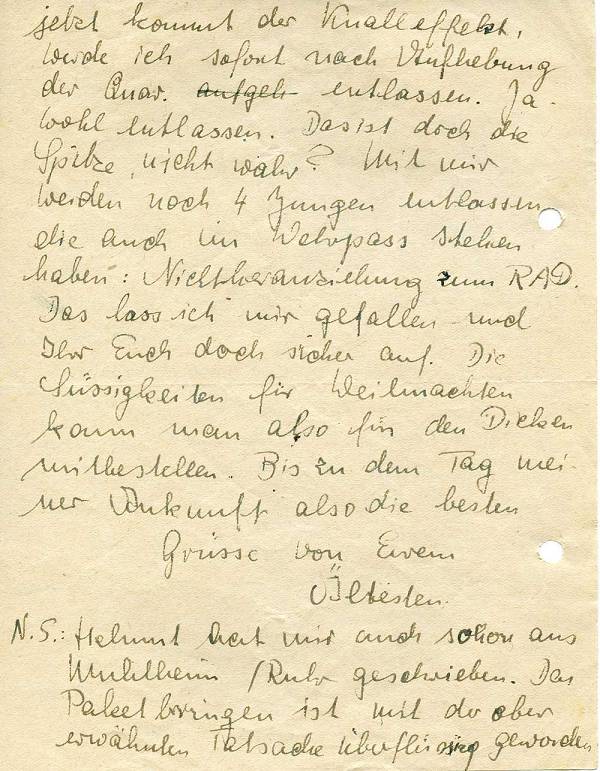 jetzt kommt der Knalleffekt,
werde ich sofort nach Aufhebung
der Quar. aufgeh entlassen. Ja-
wohl entlassen. Das ist doch die
Spitze, nicht wahr? Mit mir
werden noch 4 Jungen entlassen
die auch im Wehrpass stehen
haben: Nichtheranziehung zum RAD.
Das lass ich mir gefallen und
Ihr Euch doch sicher auf. Die
Süssigkeiten für Weihnachten
kann man also für den Dicken
mitbestellen. Bis zu dem Tag mei-
ner Ankunft also die besten
Grüsse von Eurem
Ältesten.
N.S.: Helmut hat mir auch schon aus
Muhlheim /Ruhr geschrieben. Das
Paket bringen ist mit der ober
erwähnten Tatsache überflüssig geworden.